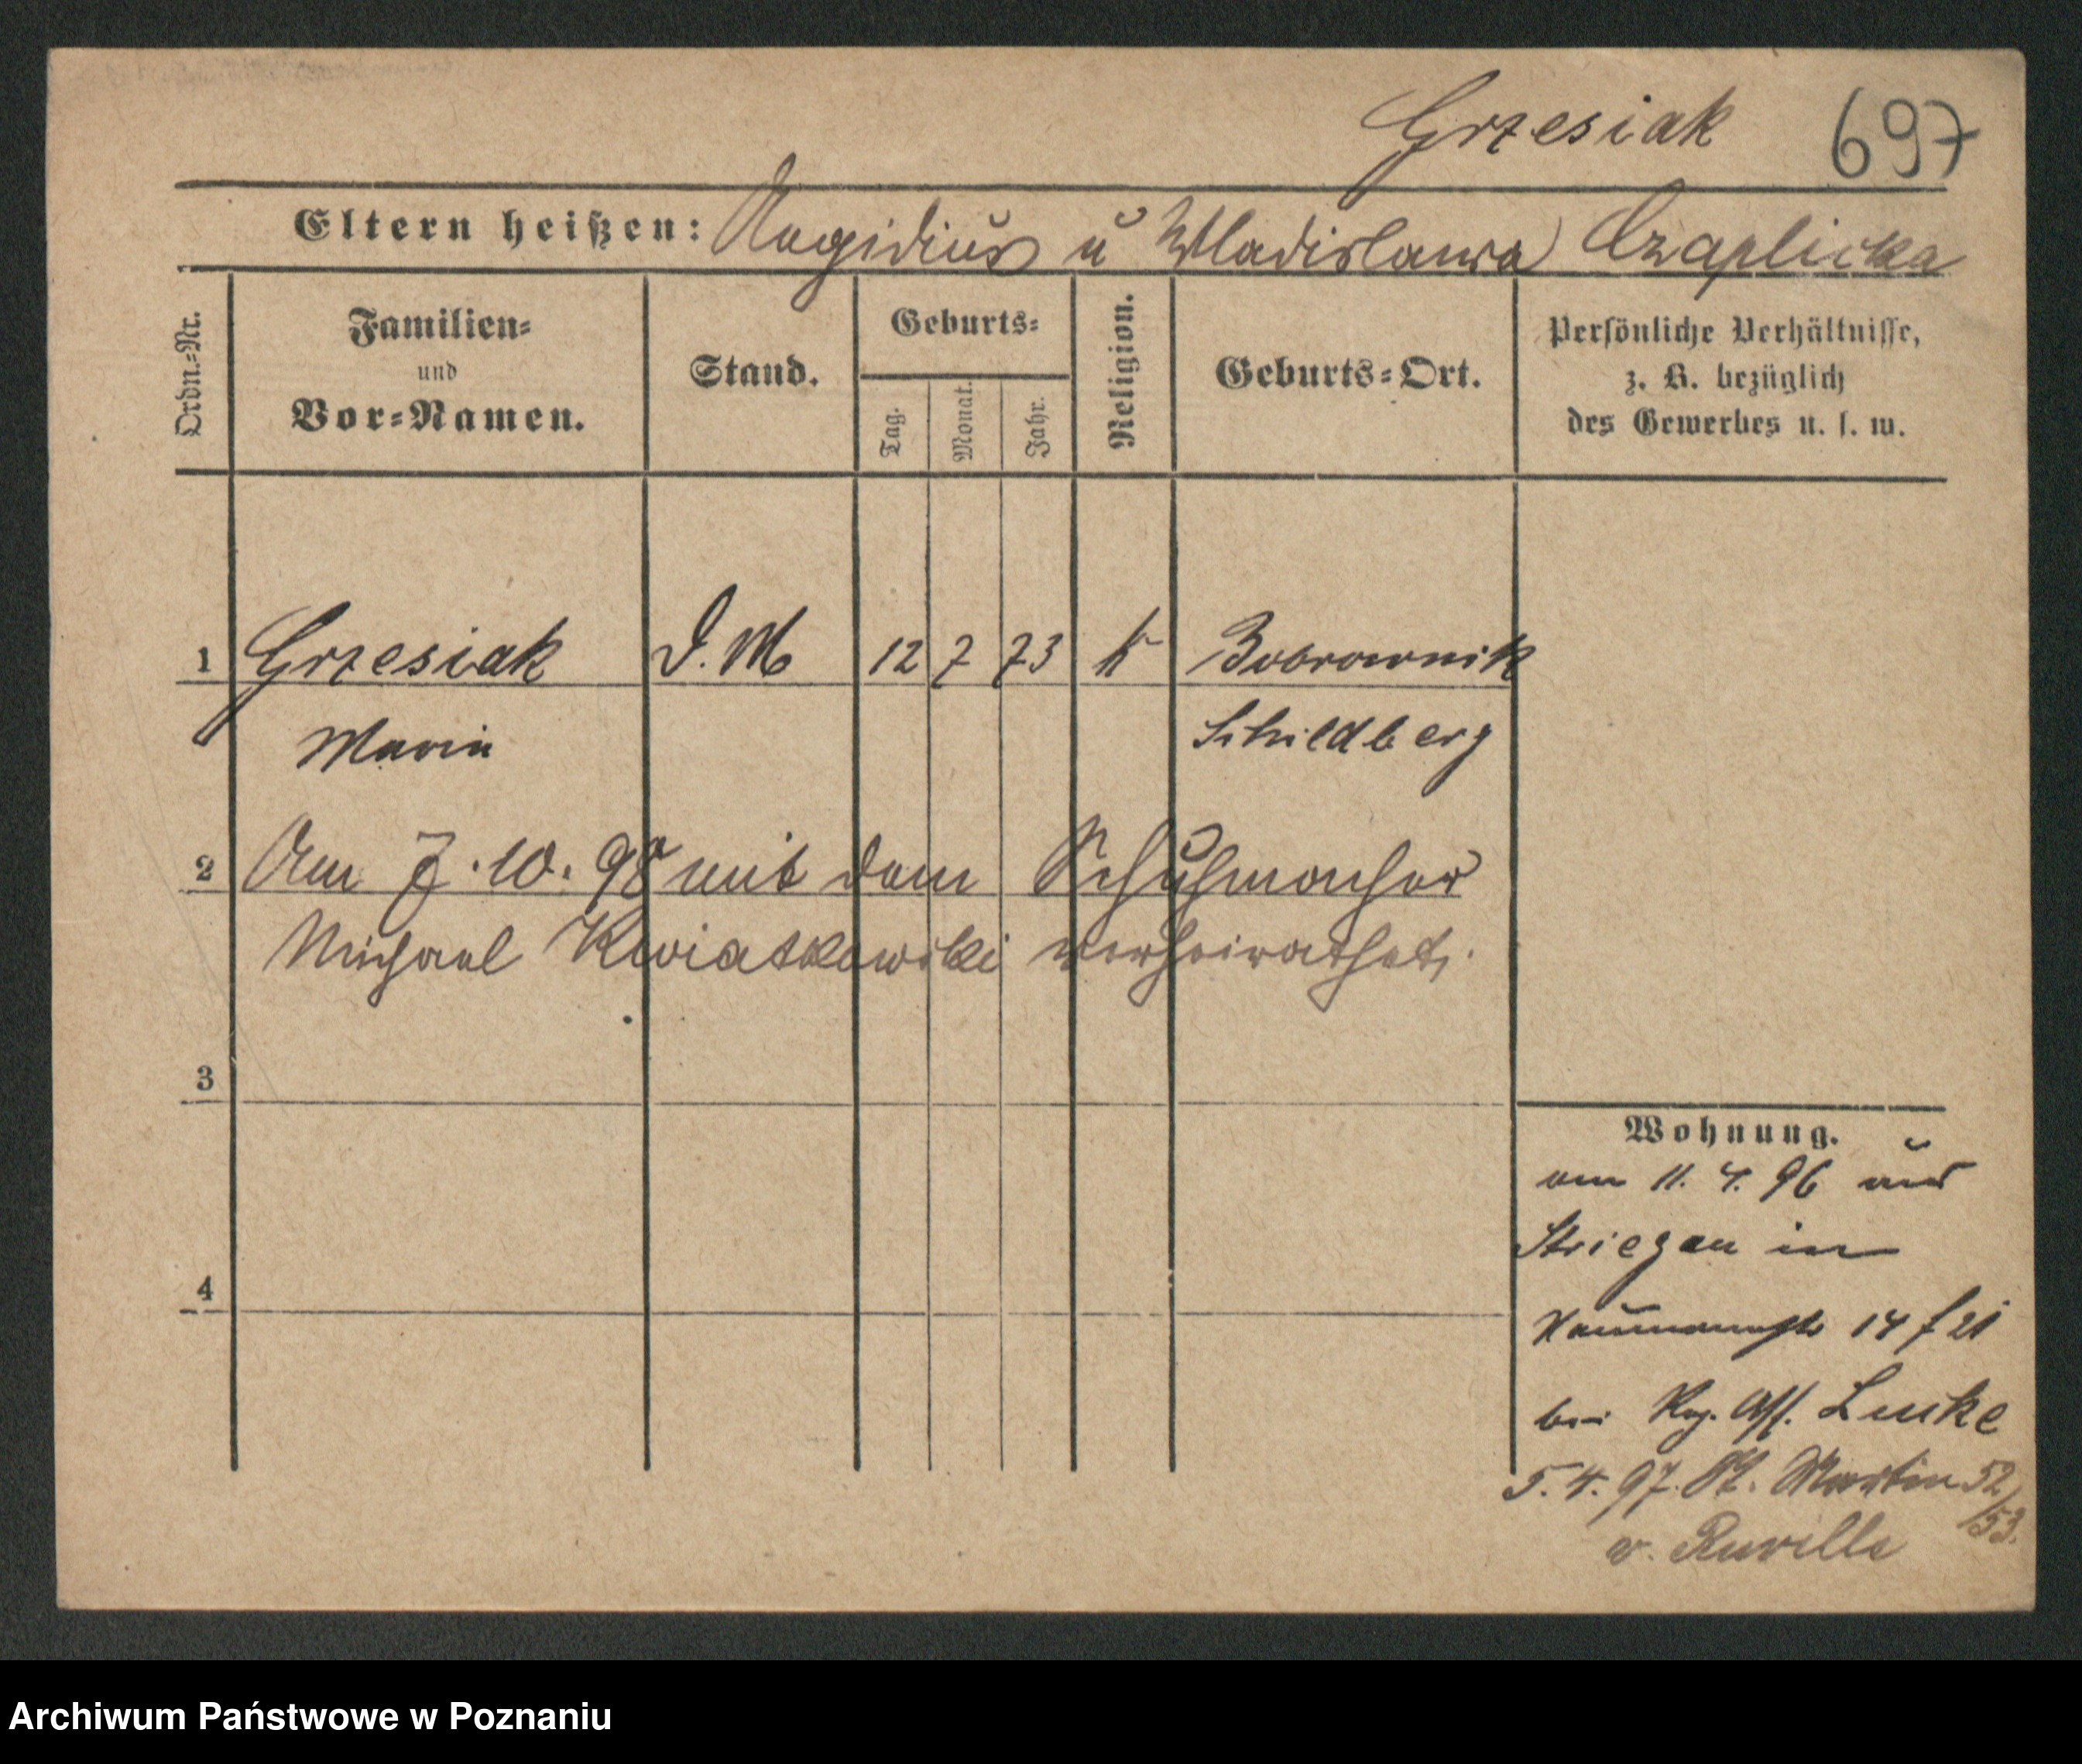 Grzesiak 697
Eltern heißen: Aegidius u Wladislawa Czaplicka
Ordn.=Nr.
Familien=
und
Vor=Namen.
Stand.
Geburts=
Tag.
Monat.
Jahr.
Religion.
Geburts=Ort.
Persönliche Verhältnisse,
z. B. bezüglich
des Gewerbes u. s. w.
1 Grzesiak D. M 12 7 73 k Bobrownik
Maria Schildberg
2 Am 7. 10. 98 mit dem Schuhmacher
Michael Kwiatkowski verheirathet.
3
4
Wohnung.
am 11. 4. 96 aus
Striegau in
Naumannstr 14 f 21
bei Reg. Ass. Lucke
5. 4. 97. St. Martin 52/53.
v. Ruville
Archiwum Państwowe w Poznaniu